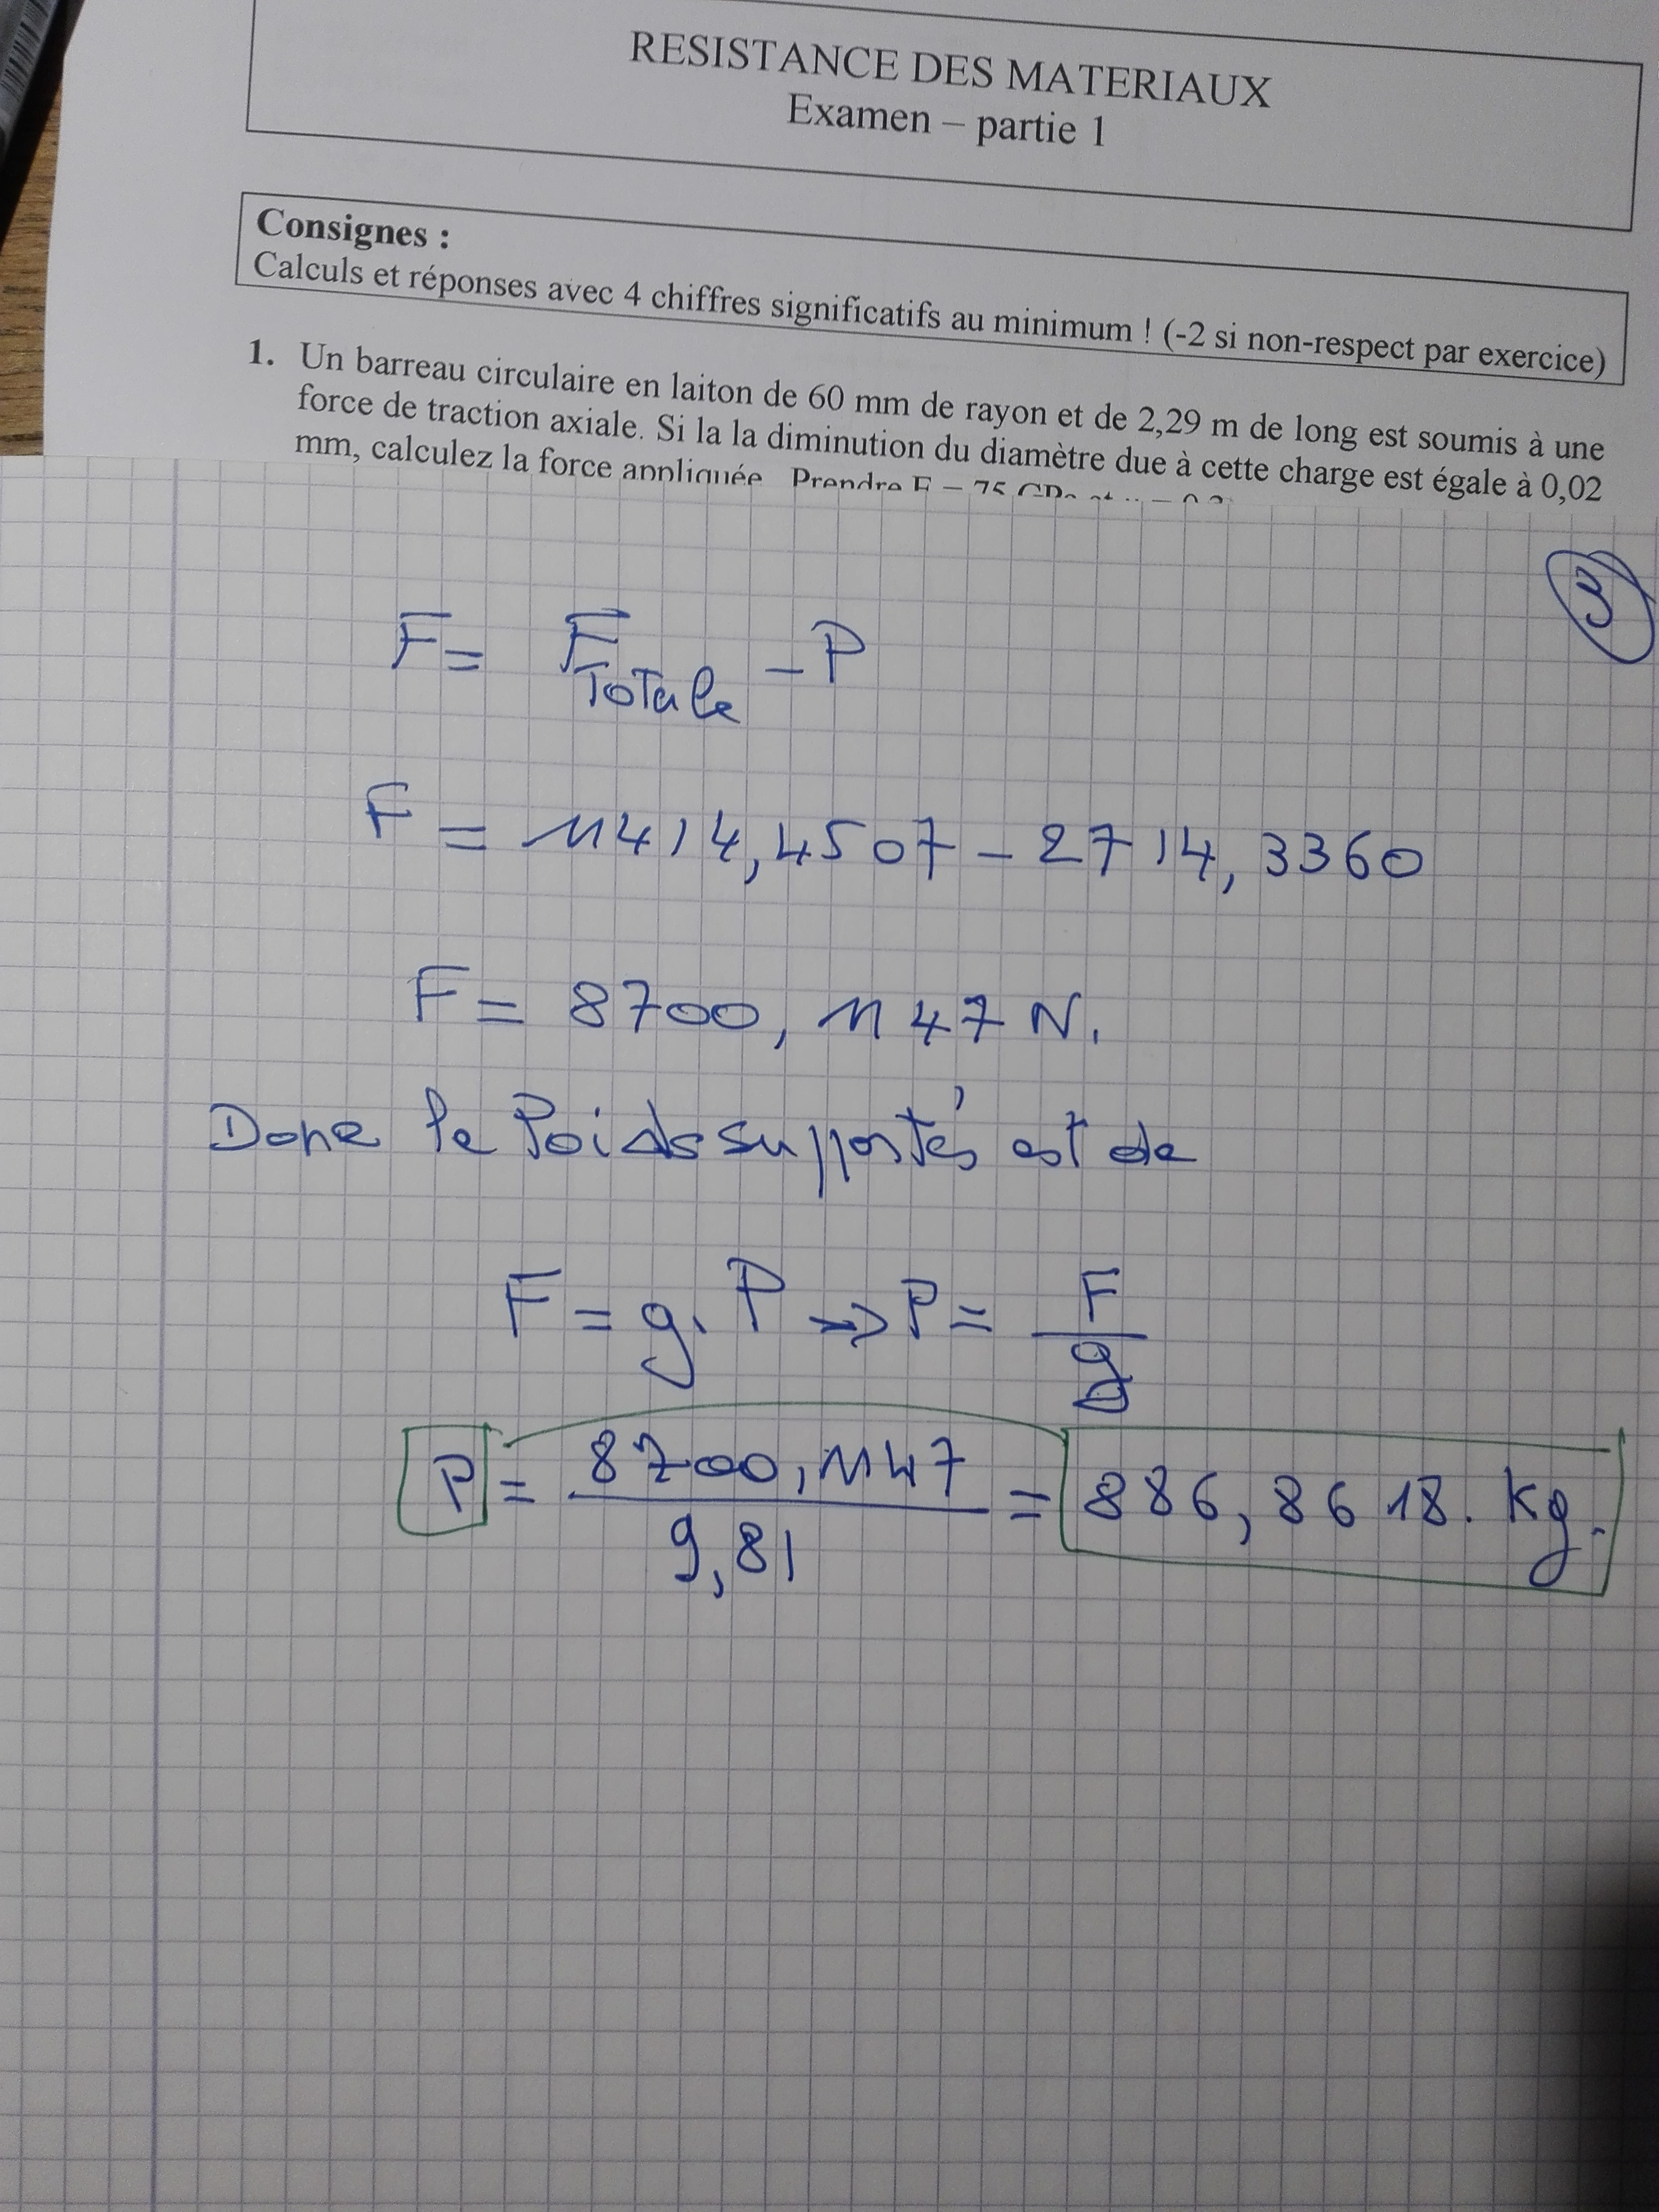 RESISTANCE DES MATERIAUX
Examen – partie 1
Consignes :
Calculs et réponses avec 4 chiffres significatifs au minimum ! (-2 si non-respect par exercice)
1. Un barreau circulaire en laiton de 60 mm de rayon et de 2,29 m de long est soumis à une
force de traction axiale. Si la la diminution du diamètre due à cette charge est égale à 0,02
mm, calculez la force appliquée. Prendre E = 75 GPa et
F = F Totale - P
F = 11414,4507 - 2714,3360
F = 8700,1147 N.
Donc le Poids supportés est de
F = g. P → P = F / g
P = 8700,1147 / 9,81 = 886,8618. kg.